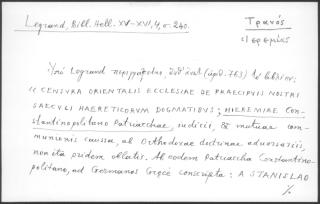 Legrand, Bibl. Hell. XV-XVI, 4, σ. 240.
Τρανός
Ἱερεμίας
Ὑπὸ Legrand περιγράφεται, (ἀριθ. 763) τὸ βιβλίον:
"CENSURA ORIENTALIS ECCLESIAE DE PRAECIPUIS NOSTRI
SAECULI HAERETICORUM DOGMATIBUS; HIEREMIAE Con-
stantinopolitano Patriarchae, judicii, & mutuae com-
munionis caussa, ab Orthodoxae doctrinae adversariis,
non ita pridem oblatis. Ab eodem Patriarcha Constantino-
politano, ad Germanos Graecè conscripta: A STANISLAO
./.